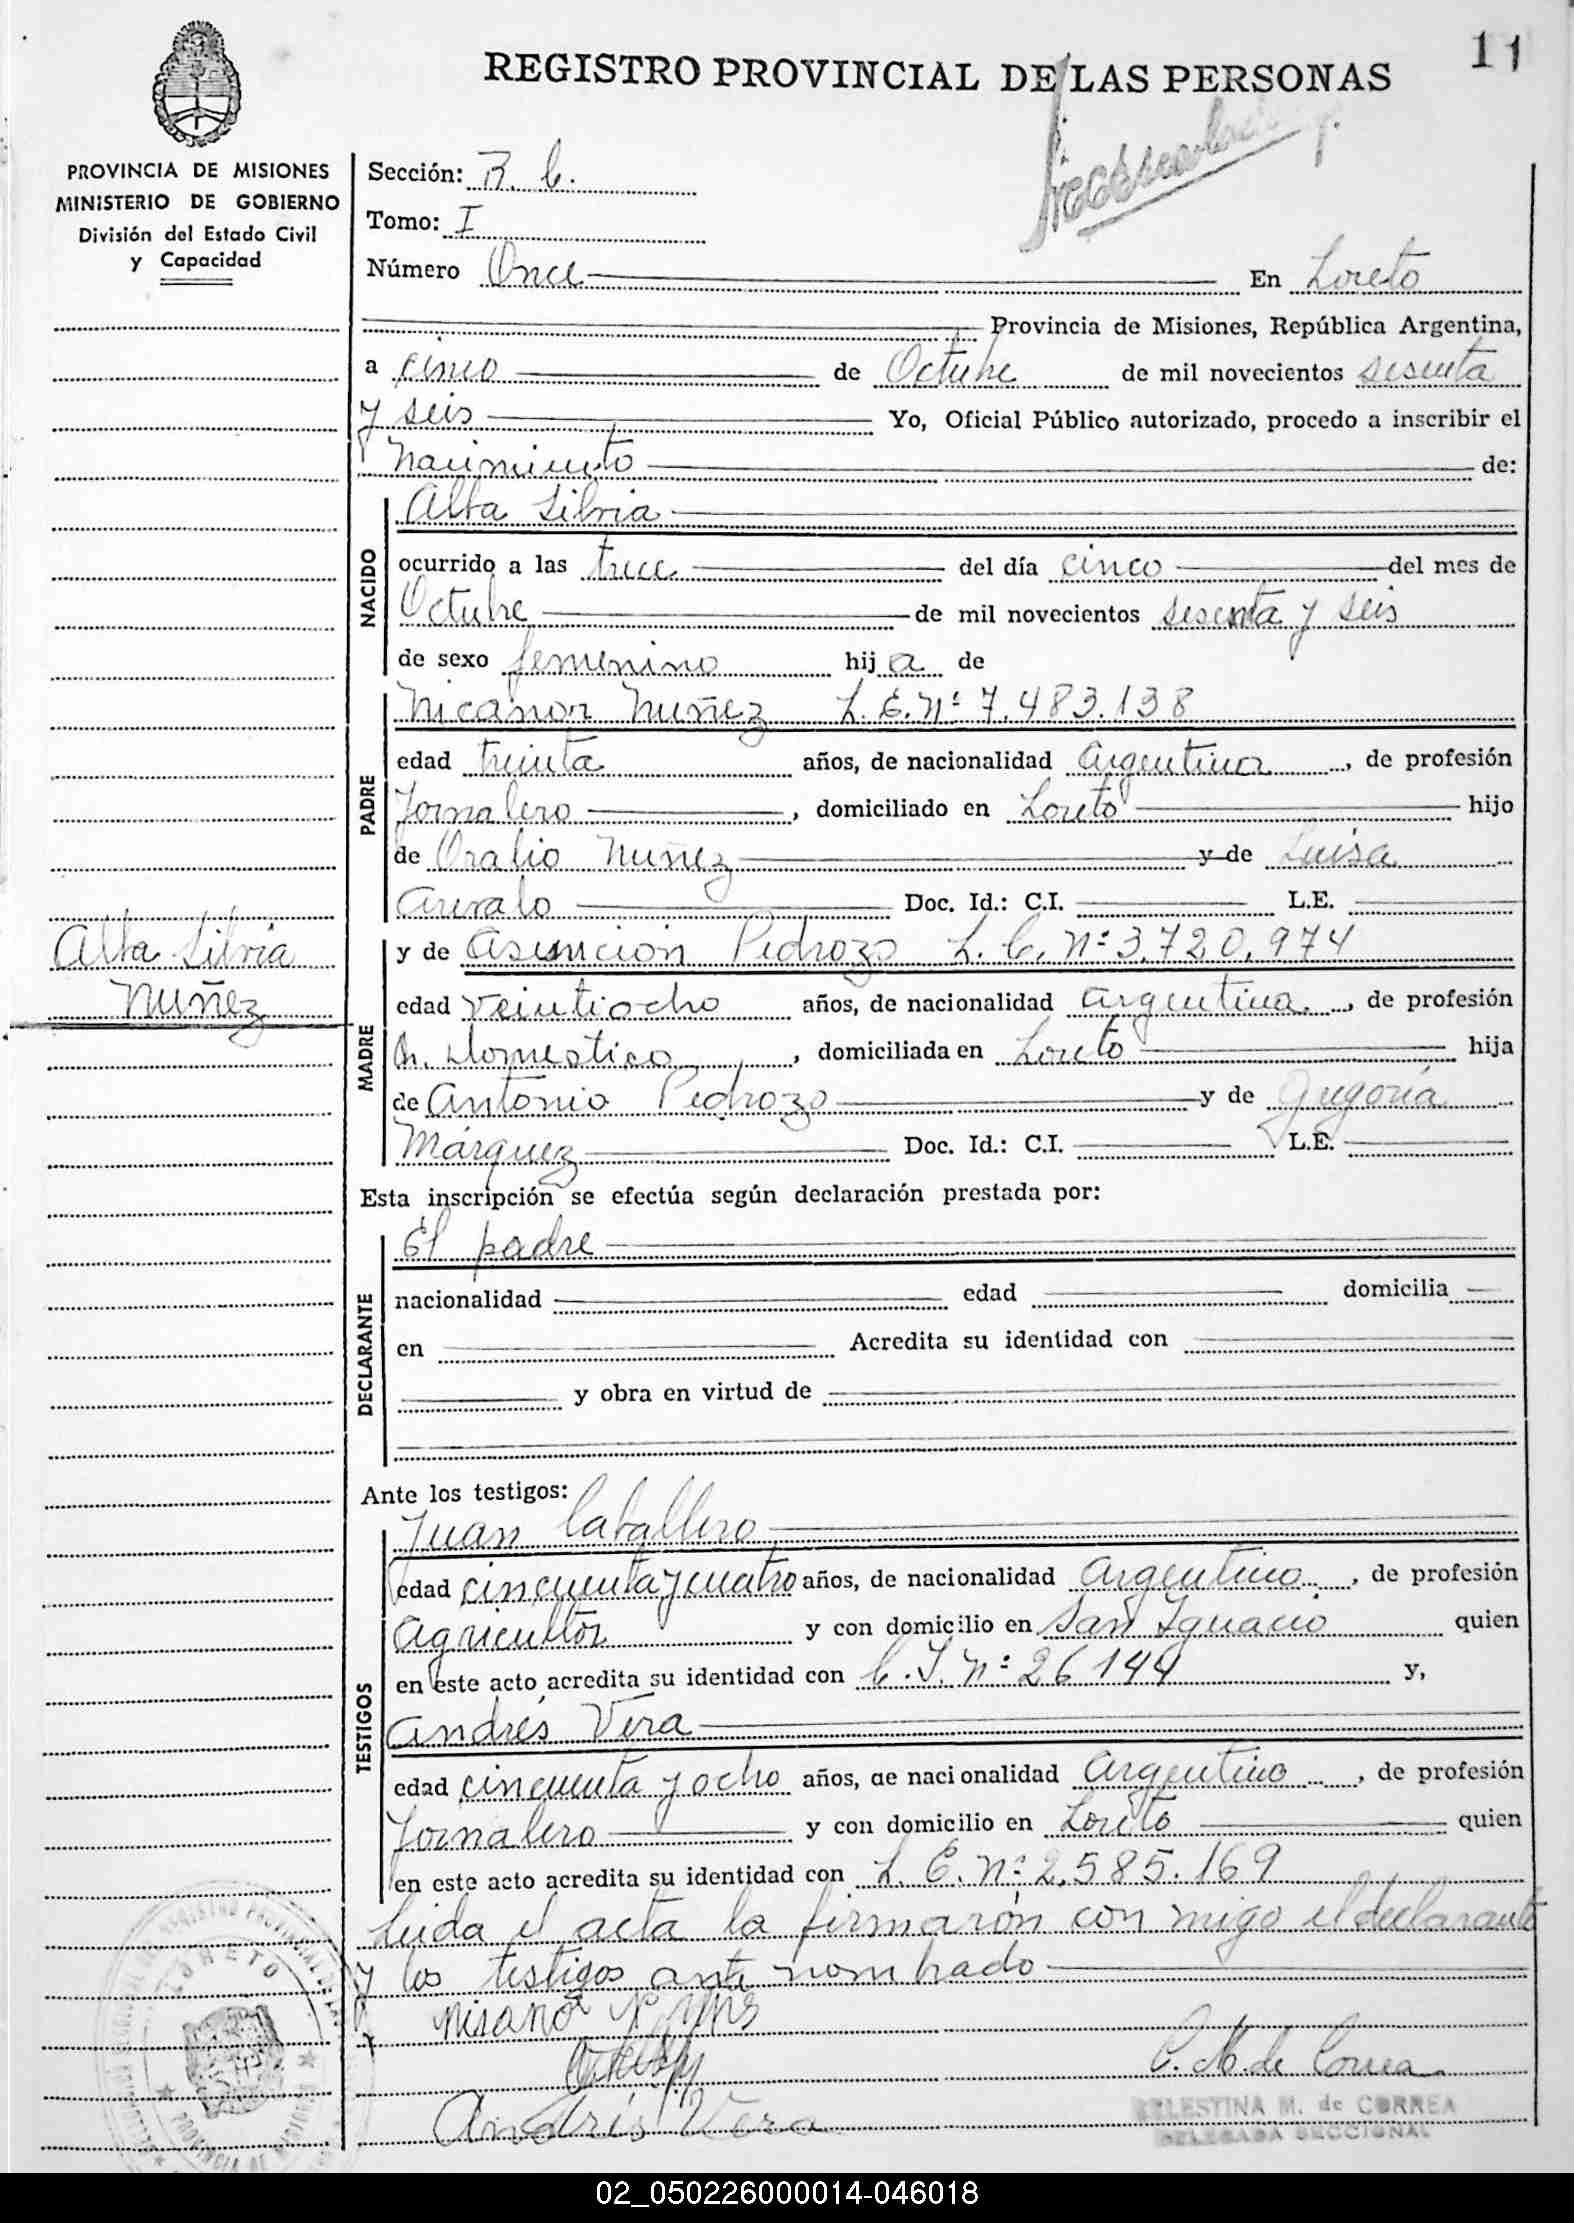 11
REGISTRO PROVINCIAL DE LAS PERSONAS
PROVINCIA DE MISIONES
MINISTERIO DE GOBIERNO
División del Estado Civil
y Capacidad
Sección: R. C.
Tomo: I
Número Once En Loreto
Provincia de Misiones, República Argentina,
a cinco de Octubre de mil novecientos sesenta
y seis Yo, Oficial Público autorizado, procedo a inscribir el
Nacimiento de:
NACIDO
Alba Silvia
ocurrido a las trece del día cinco del mes de
Octubre de mil novecientos sesenta y seis
de sexo femenino hija de
PADRE
Nicanor Nuñez L.E.Nº 7.483.138
edad treinta años, de nacionalidad argentina, de profesión
Jornalero, domiciliado en Loreto hijo
de Oralio Nuñez y de Luisa
Arevalo Doc. Id.: C.I. L.E.
Alba Silvia
Nuñez
MADRE
y de Asunción Pedrozo L.C. Nº 3.720.974
edad veintiocho años, de nacionalidad argentina, de profesión
Q. domestico, domiciliada en Loreto hija
de Antonio Pedrozo y de Gregoria
Márquez Doc. Id.: C.I. L.E.
Esta inscripción se efectúa según declaración prestada por:
DECLARANTE
El padre
nacionalidad edad domicilia
en Acredita su identidad con
y obra en virtud de
Ante los testigos:
TESTIGOS
Juan Caballero
edad cincuenta y cuatro años, de nacionalidad argentino, de profesión
Agricultor y con domicilio en San Ignacio quien
en este acto acredita su identidad con C.I. Nº 26144 y,
Andrés Vera
edad cincuenta y ocho años, de nacionalidad Argentino, de profesión
Jornalero y con domicilio en Loreto quien
en este acto acredita su identidad con L.E. Nº 2.585.169
Leida el acta la firmarón con migo el declarante
y los testigos ante nombrado
Andrés Vera
C. M. de Correa
CELESTINA M. de CORREA
DELEGADA SECCIONAL
LORETO
PROVINCIA DE MISIONES
02_050226000014-046018